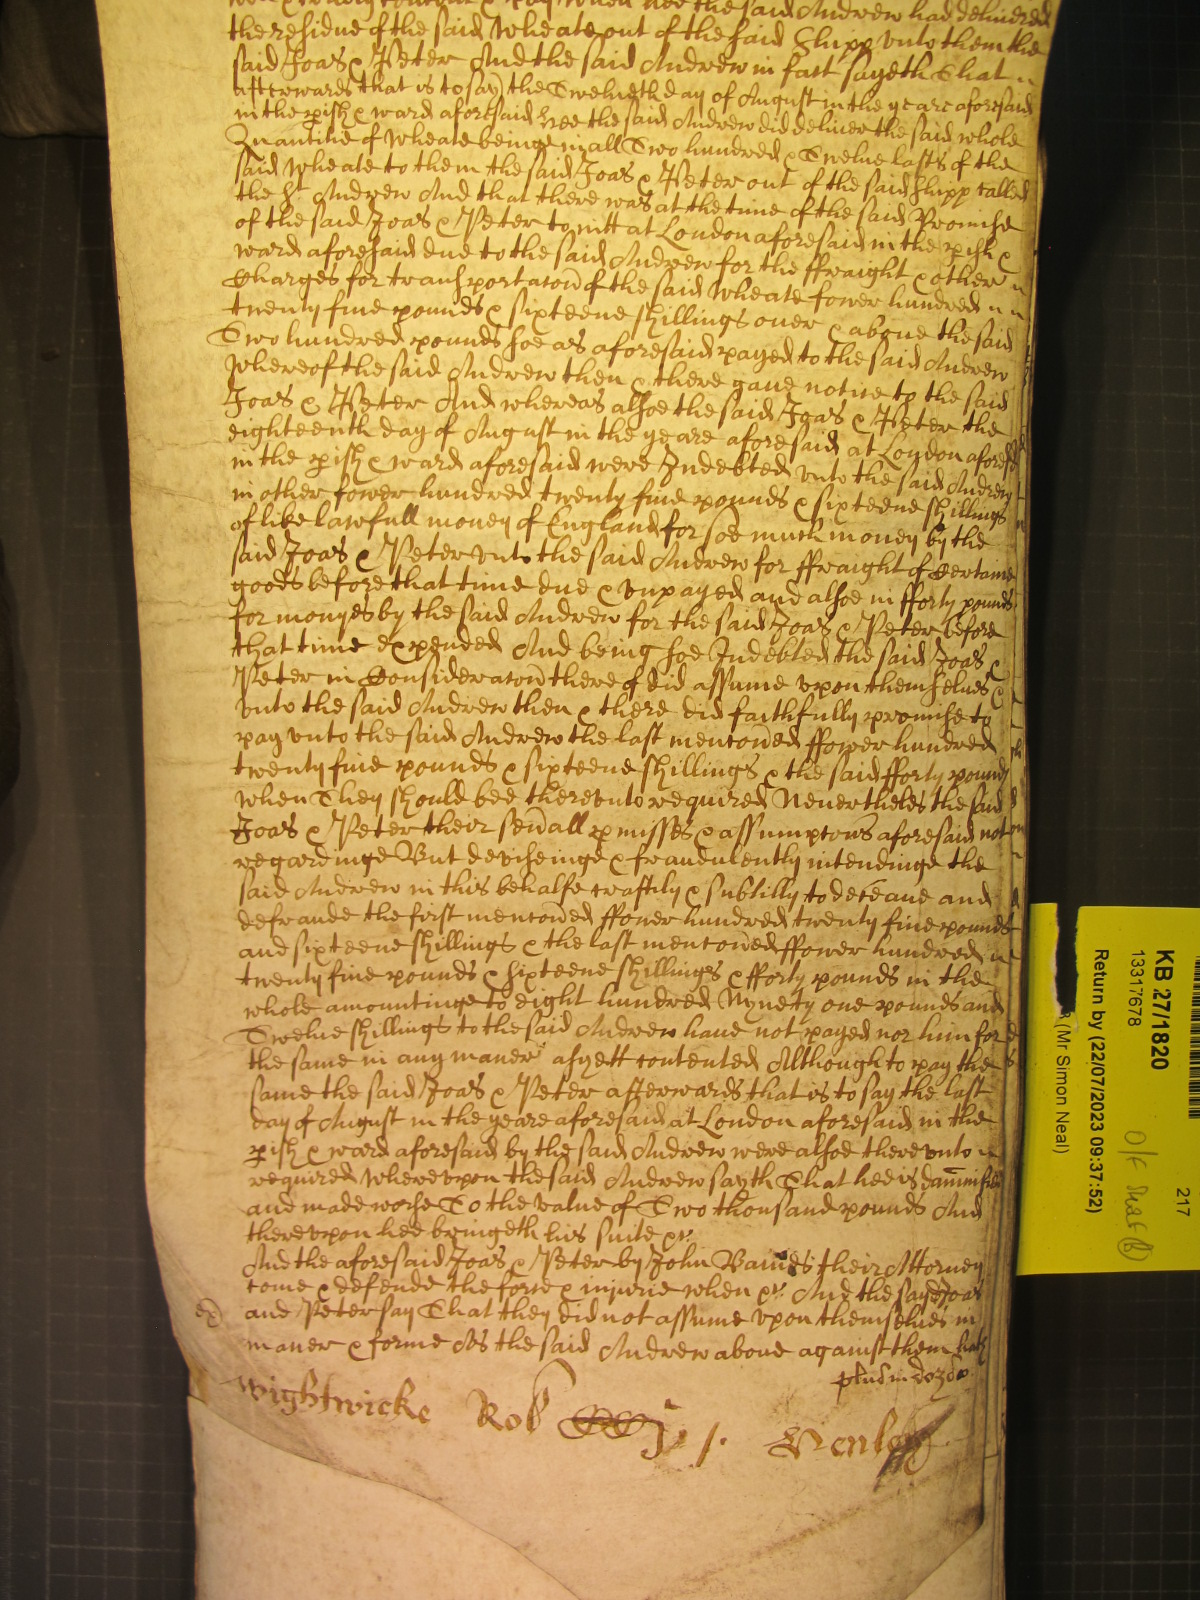 well & truly content & pay when hee the said Andrew had delivered
the residue of the said Wheate out of the said Shipp unto them the
said Joas & Peter And the said Andrew in fact sayeth That
afterwards that is to say the Twelueth day of August in the yeare aforesaid
in the pish & ward aforesaid hee the said Andrew did deliuer the said whole
Quantitie of Wheate beinge in all Two hundred & Twelue lasts of the
said Wheate to them the said Joas & Peter out of the said Shipp called
the St Andrew And that there was at the time of the said Promise
of the said Joas & Peter to witt at London aforesaid in the pish &
ward aforesaid due to the said Andrew for the ffraight & other
Charges for transportacon of the said Wheate fower hundred
twenty fiue pounds & sixteene shillings ouer & aboue the said
Two hundred pounds soe as aforesaid payed to the said Andrew
Whereof the said Andrew then & there gaue notice to the said
Joas & Peter And whereas alsoe the said Joas & Peter the
eighteenth day of August in the yeare aforesaid at London aforesd
in the pish & ward aforesaid were Indebted unto the said Andrew
in other fower hundred twenty fiue pounds & sixteene shillings
of like lawfull money of England for soe much money by the
said Joas & Peter unto the said Andrew for ffraight of Certaine
goods before that time due & unpayed and alsoe in fforty pounds
for monyes by the said Andrew for the said Joas & Peter before
that time expended And being soe Indebted the said Joas &
Peter in Consideracon thereof did assume upon themselues &
unto the said Andrew then & there did faithfully promise to
pay unto the said Andrew the last menconed ffower hundred
twenty fiue pounds & sixteene shillings & the said fforty pounds
when They should bee thereunto required Neuertheles the said
Joas & Peter their seuall pmisses & assumpcons aforesaid not
regardinge But deviseinge & fraudulently intendinge the
said Andrew in this behalfe craftily & subtilly to deceaue and
defraude the first menconed ffower hundred twenty fiue pounds
and sixteene shillings & the last menconed ffower hundred
twenty fiue pounds & sixteene shillings & fforty pounds in the
whole amountinge to eight hundred Nynety one pounds and
Twelue shillings to the said Andrew haue not payed nor him for
the same in any maner as yett contented Although to pay the
same the said Joas & Peter afterwards that is to say the last
day of August in the yeare aforesaid at London aforesaid in the
pish & ward aforesaid by the said Andrew were alsoe thereunto
required Whereupon the said Andrew sayth That hee is damnified
and made worse To the value of Two thousand pounds And
thereupon hee bringeth his suite &c
And the aforesaid Joas & Peter by John Baines their Attorney
come & defende the force & iniurie when &c And the sayd Joas
and Peter say That they did not assume upon themselues in
maner & forme As the said Andrew aboue against them hath
Wightwicke Rob
KB 27/1820
13317678
Return by (22/07/2023 09:37:52)
(Mr Simon Neal)
217